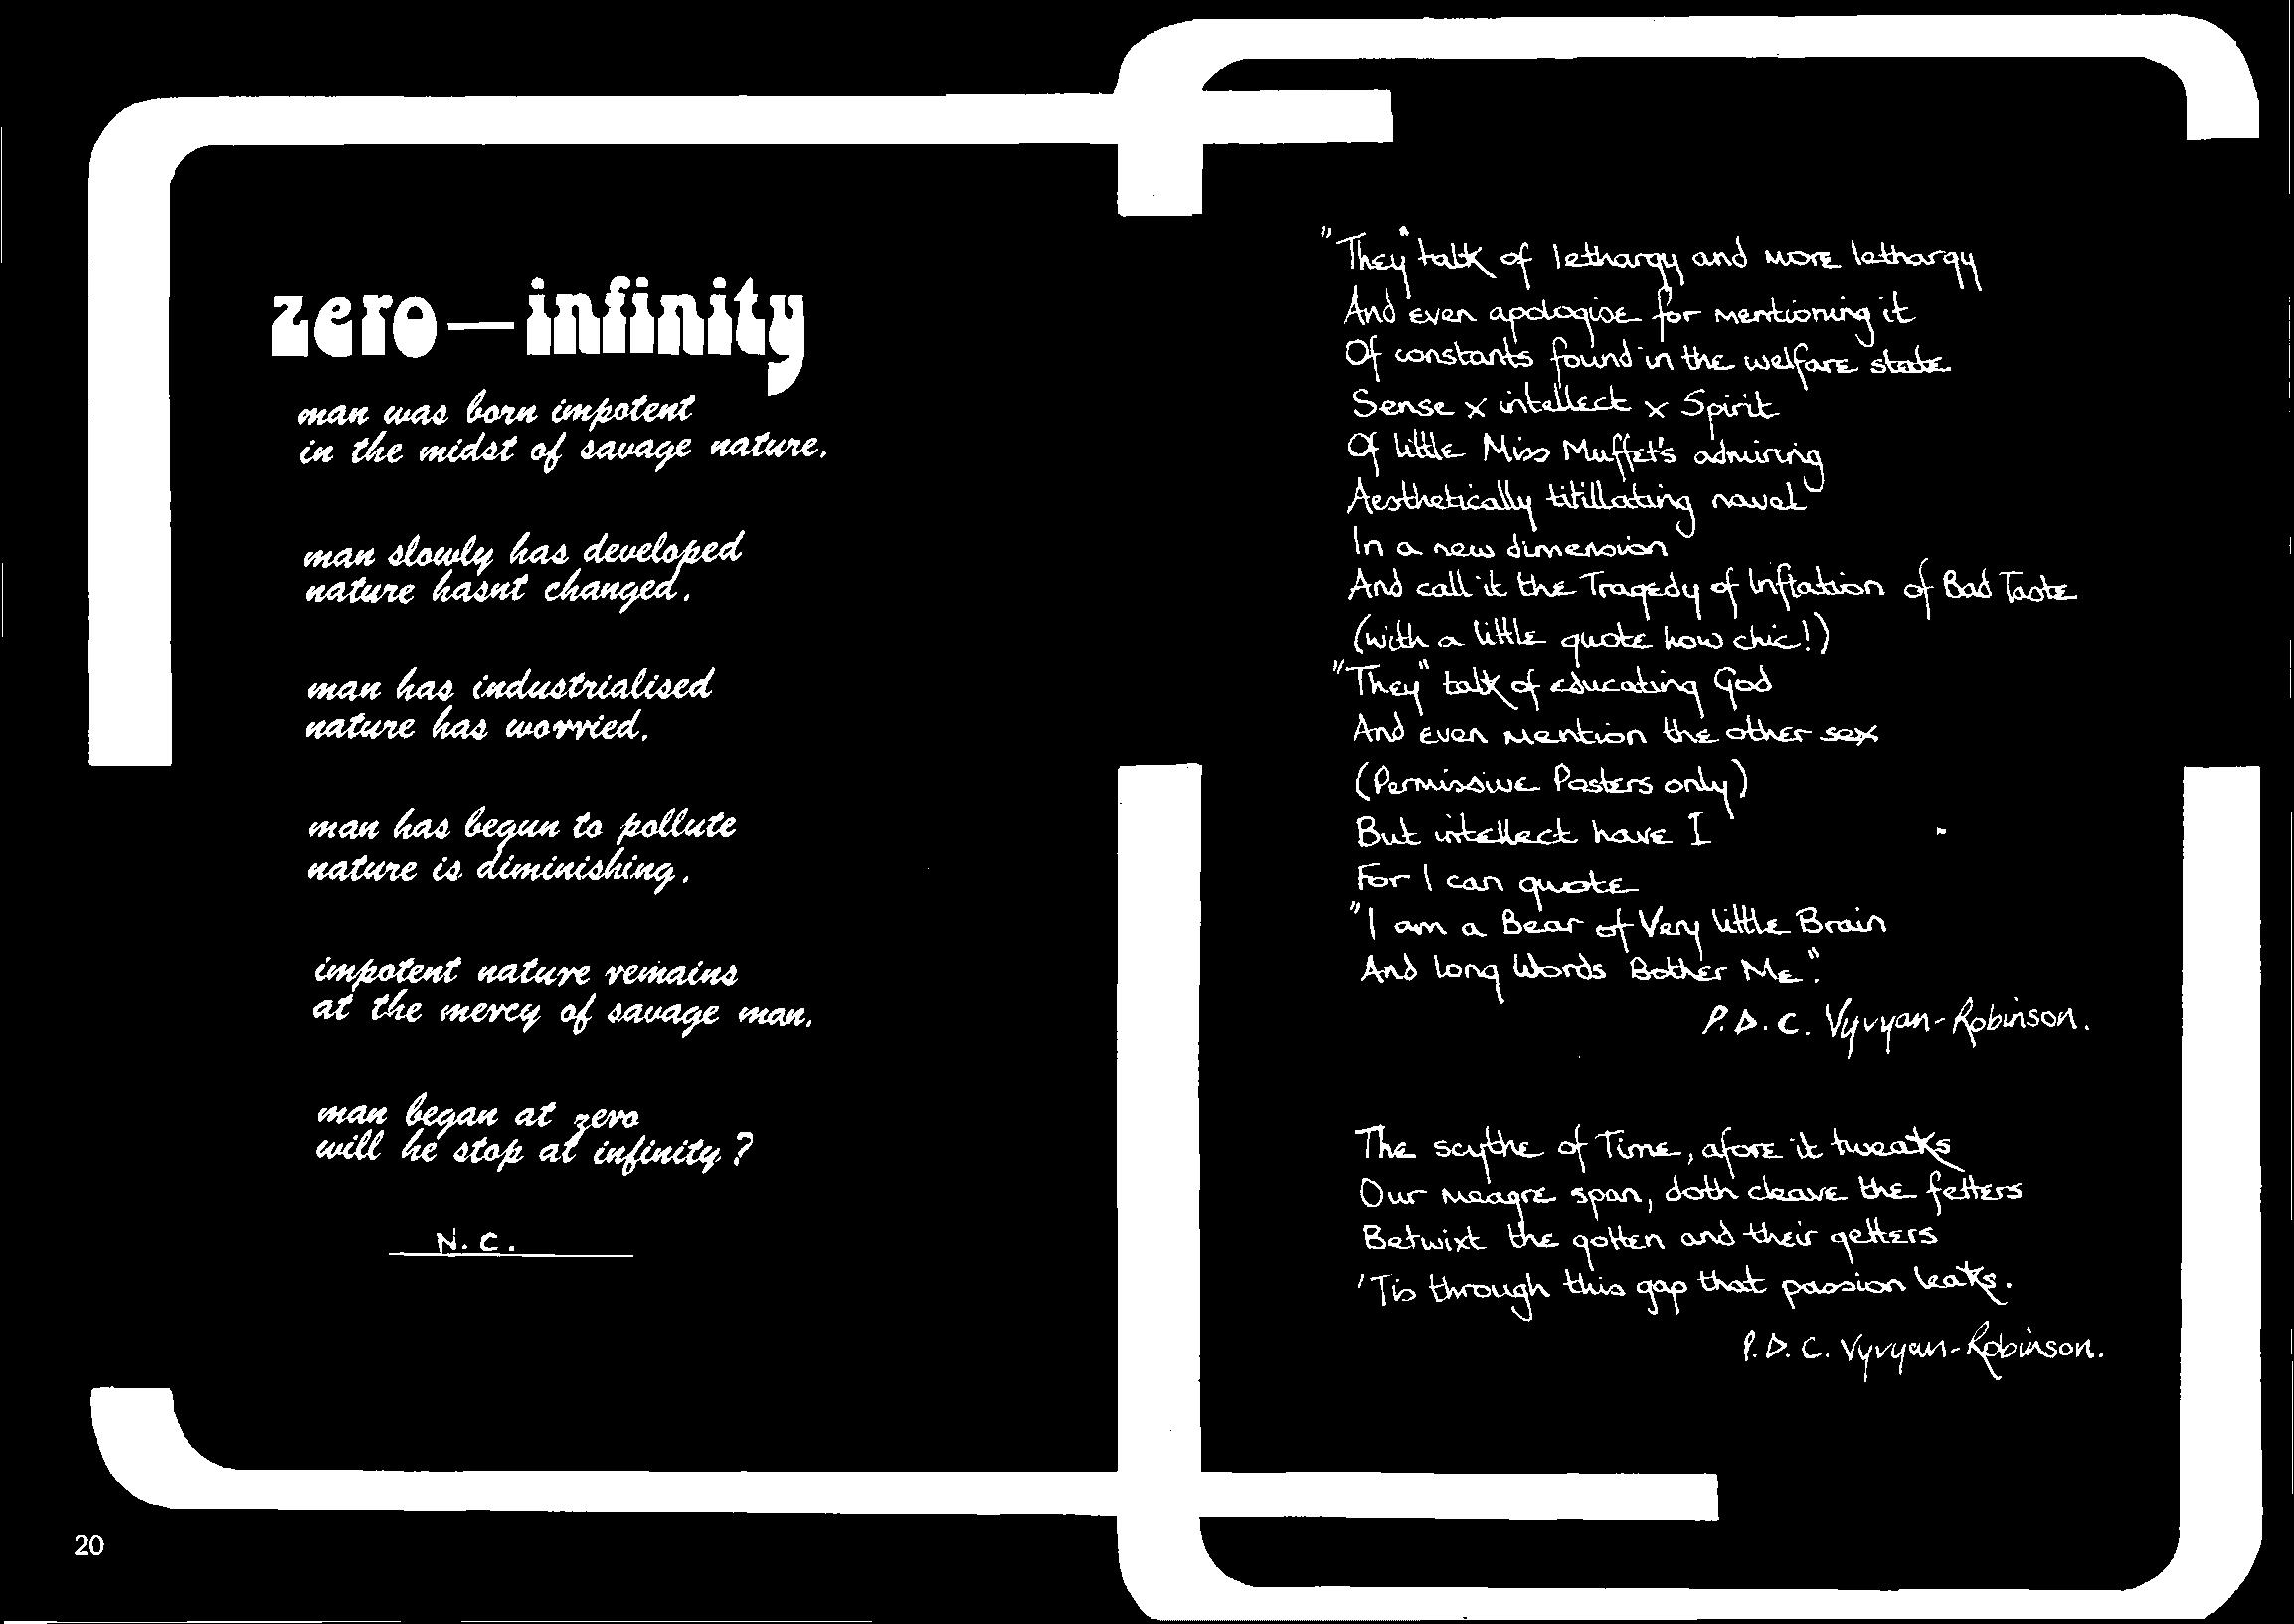 zero—infinity
man was born impotent
in the midst of savage nature.
man slowly has developed
nature hasnt changed.
man has industrialised
nature has worried.
man has begun to pollute
nature is diminishing.
impotent nature remains
at the mercy of savage man.
man began at zero
will he stop at infinity?
N. C.
20
"They" talk of lethargy and more lethargy
And even apologise for mentioning it
Of constants found in the welfare state
Sense x intellect x Spirit
Of little Miss Muffet's admiring
Aesthetically titillating navel
In a new dimension
And call it the Tragedy of Inflation of Bad Taste
(with a little quote how chic!)
"They" talk of educating God
And even mention the other sex
(Permissive Posters only)
But intellect have I
For I can quote
"I am a Bear of Very little Brain
And long Words Bother Me".
P. D. C. Vyvyan-Robinson.
The scythe of Time, afore it tweaks
Our meagre span, doth cleave the fetters
Betwixt the gotten and their getters
'Tis through this gap that passion leaks.
P. D. C. Vyvyan-Robinson.